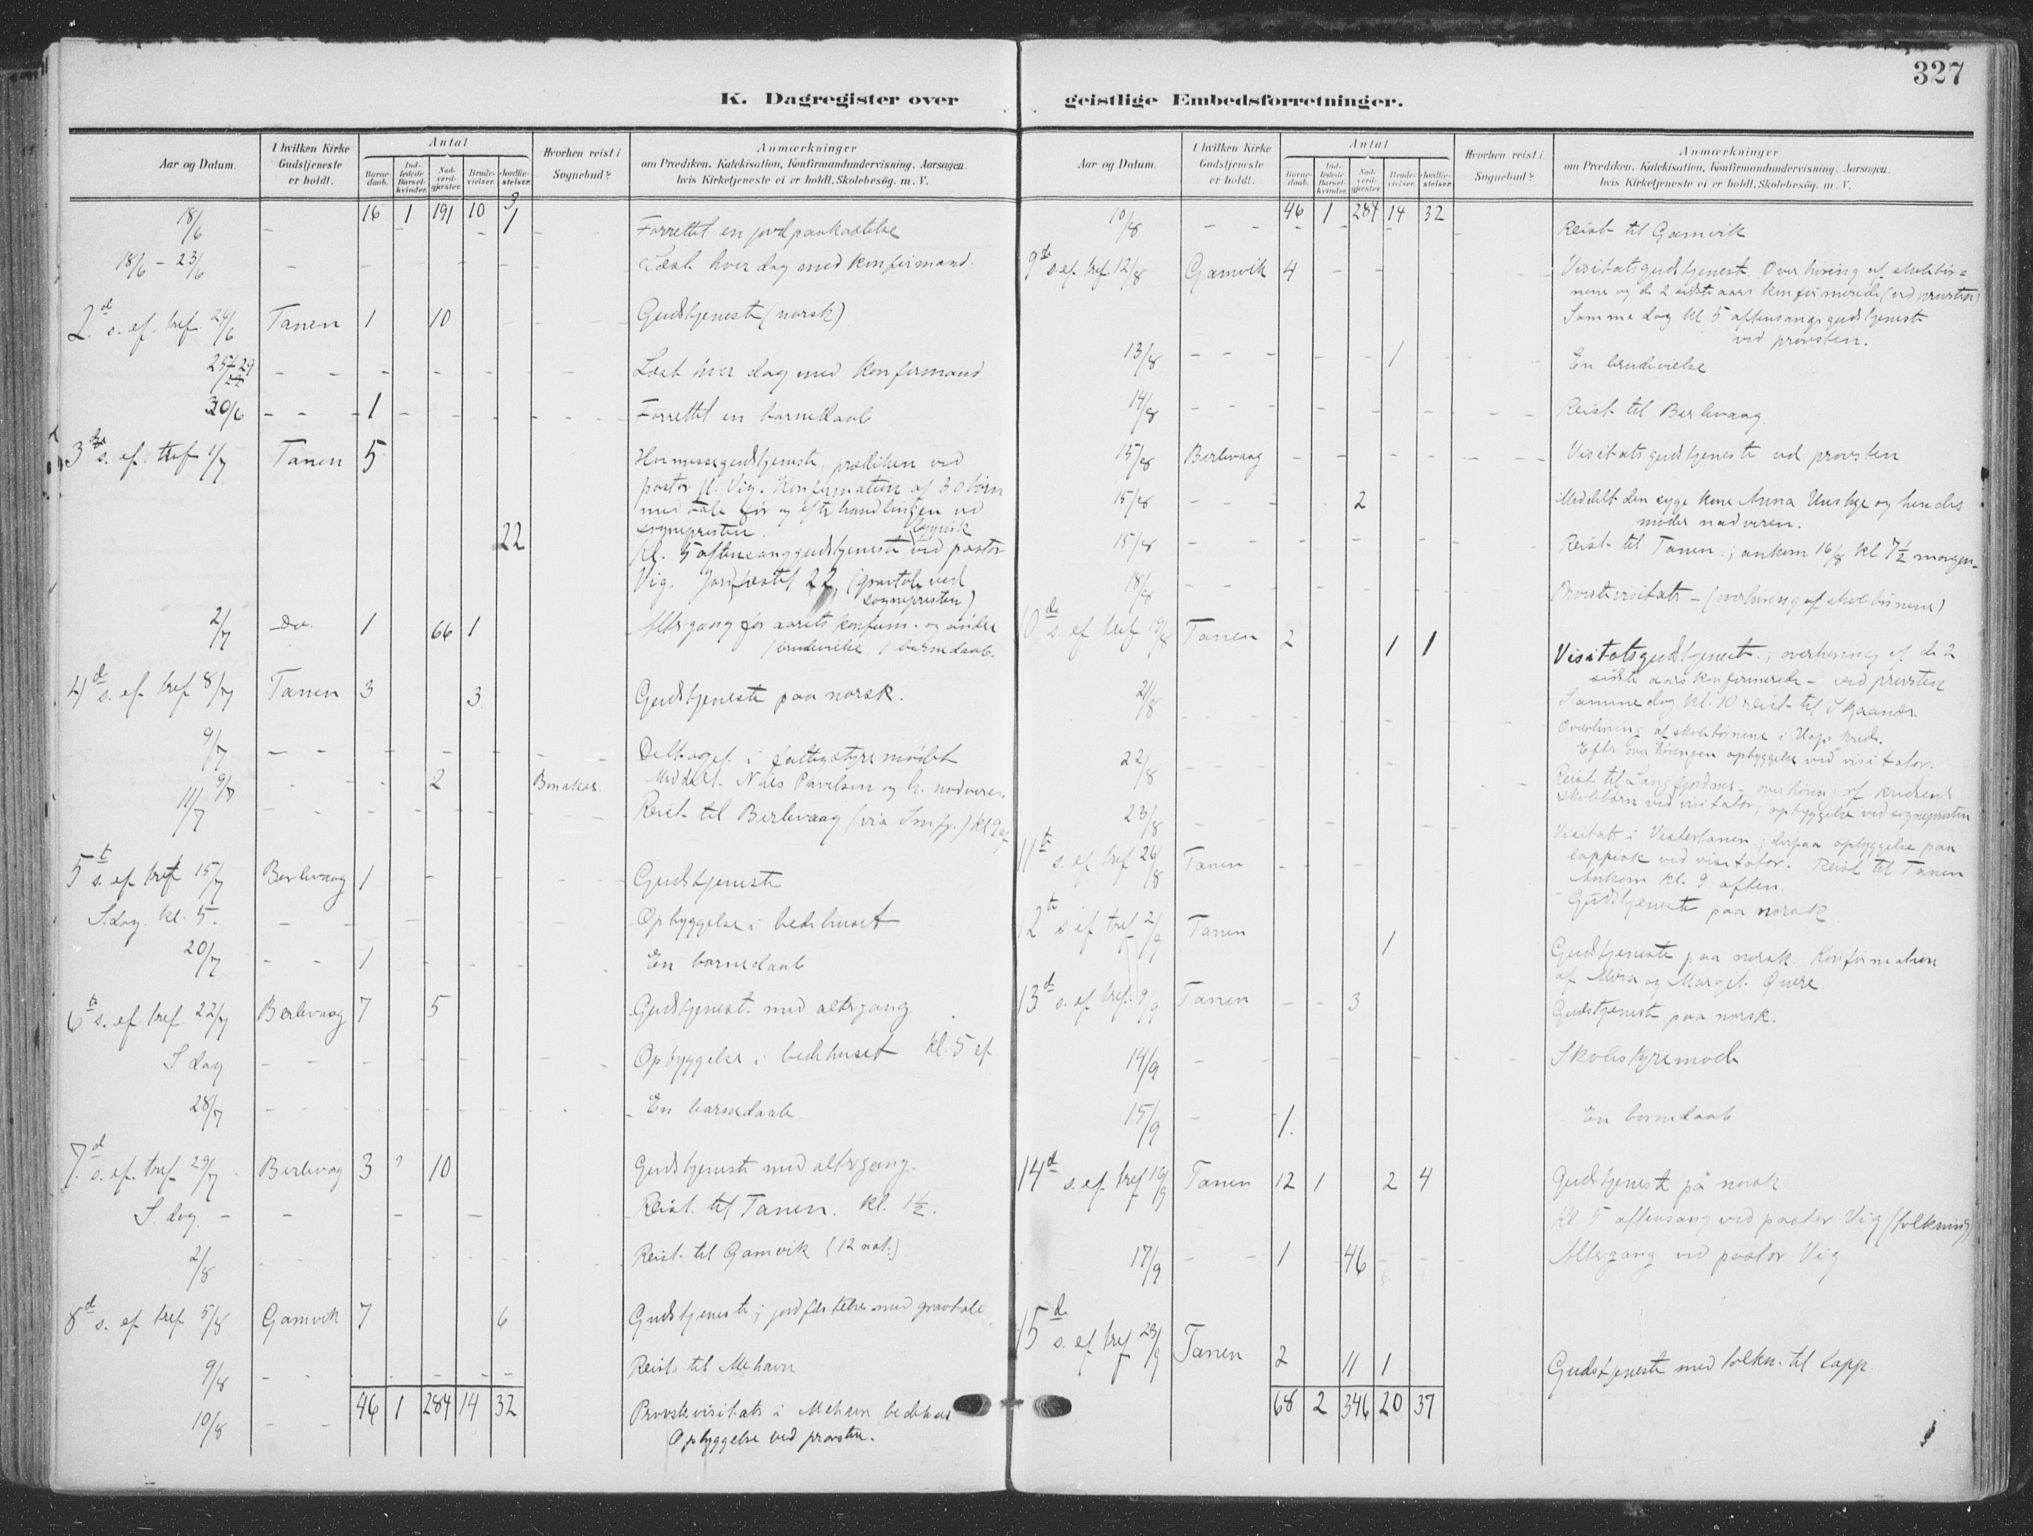 327
K. Dagregister over geistlige Embedsforretninger.
Aar og Datum. I hvilken Kirke Gudstjeneste er holdt. Antal Barnedaab. Indledede Barselkvinder. Nadverdgjester. Brudevielser. Jordfæstelser. Hvorhen reist i Sognebud? Anmærkninger om Prædiken, Katekisation, Konfirmandundervisning, Aarsagen, hvis Kirketjeneste ei er holdt, Skolebesøg. m. V.
16 1 191 10 9
18/6 1 Forrettet en jordpaakastelse
18/6 - 23/6 Læst hver dag med konfirmand.
2d s. ef. tref. 24/6 Tanen 1 10 Gudstjeneste (norsk)
Læst hver dag med konfirmand
30/6 1 Forrettet en barnedaab
s. ef. tref 1/7 Tanen 5 Høimessegudstjeneste, prædiken ved
pastor Vig. Konfirmation af 30 børn
med tale før og efter handlingen ved
sognepresten.
22 Kl. 5 aftensanggudstjeneste lappisk ved pastor
Vig. Jordfæstet 22 (gravtale ved
sognepresten)
2/7 Do. 1 66 1 Altergang for aarets konfirm. og andre
1 brudevielse 1 barnedaab.
4d s. ef. tref 8/7 Tanen 3 3 Gudstjeneste paa norsk.
9/7 Deltaget i fattigstyremødet
9/7 2 Bonakas. Meddelt Nils Pavelsen og h. nadveren.
11/7 Reist til Berlevaag (via Smfj.) kl 9
5t s. ef. tref 15/7 Berlevaag 1 Gudstjeneste
S. dag. kl. 5. Opbyggelse i bedehuset
20/7 1 En barnedaab
6t s. ef. tref. 22/7 Berlevaag 7 5 Gudstjenest. med altergang
S dag Opbyggelse i bedehuset kl. 5 ef.
28/7 En barnedaab.
7d s. ef. tref 29/7 Berlevag 3 10 Gudstjeneste med altergang.
S. dag. Reist til Tanen. kl. 1½.
2/8 Reist til Gamvik (12 nat.)
8d s. ef tref 5/8 Gamvik 7 6 Gudstjeneste; jordfæstelse med gravtale
9/8 Reist til Mehavn
46 1 284 14 32
10/8 Provstevisitats i Mehavn bedehus
Opbyggelse ved provsten.
Aar og Datum. I hvilken Kirke Gudstjeneste er holdt. Antal Barnedaab. Indledede Barselkvinder. Nadverdgjester. Brudevielser. Jordfæstelser. Hvorhen reist i Sognebud? Anmærkninger om Prædiken, Katekisation, Konfirmandundervisning, Aarsagen, hvis Kirketjeneste ei er holdt, Skolebesøg. m. V.
46 1 284 14 32
10/8 Reist til Gamvik
9de s. ef. tref 12/8 Gamvik 4 Visitatsgudstjenest. Overhøring af skolebør-
nene og de 2 sidste aars konfirmerede (ved provsten)
Samme dag kl 5 aftensangsgudstjeneste
ved provsten.
13/8 1 En brudevielse
14/8 Reist til Berlevaag
15/8 Berlevaag Visitatsgudstjeneste ved provsten
15/8 2 Meddelt den syge kone Anna og hendes
moder nadveren.
15/8 Reist til Tanen; ankom 16/8 kl 7½ morgen.
18/8 Provstevisitats - (overhøring af skolebørnene)
10de s. ef tref 19/8 Tanen 2 1 1 Visitatsgudstjenest.; overhøring af de 2
sidste aars konfirmerede - ved provsten
21/8 Samme dag kl. 10 reist til
Overhøring af skolebørnene i kreds.
Efter overhøringen opbyggelse ved visitator.
22/8 Reist til Langfjordnes - overhøring af kredsens
skolebørn ved visitator; opbyggelse ved sognepresten
23/8 Visitats i Vestertanen; derpaa opbyggelse paa
lappisk ved visitator. Reist til Tanen
Ankom kl. 9 aften.
11t s. ef tref 26/8 Tanen Gudstjeneste paa norsk.
12t s ef tref 2/9 Tanen 1 Gudstjeneste paa norsk. Konfirmation
af Mora og Margit
13d s. ef tref. 9/9 Tanen 3 Gudstjeneste paa norsk.
14/9 Skolestyremøde
15/9 1. En barnedaab
14d s. ef. tref 16/9 Tanen 12 1 2 4 Gudstjeneste på norsk
Kl 5 aftensang ved pastor Vig (tolkning)
17/9 1 46 Altergang ved pastor Vig
15de s. ef tref 23/9 Tanen 2 11 1 Gudstjeneste med tolkn. til lapp.
68 2 346 20 37